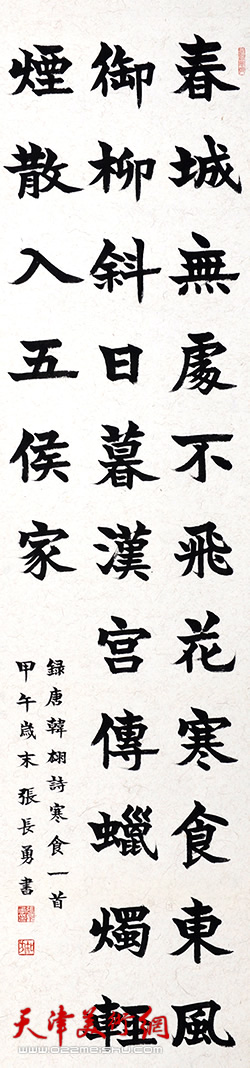 春城無處不飛花寒食東風
御柳斜日暮漢宫傳蠟燭輕
煙散入五侯家
録唐韓翃詩寒食一首
甲午歲末張長勇書
天津美術網
www.022meishu.com